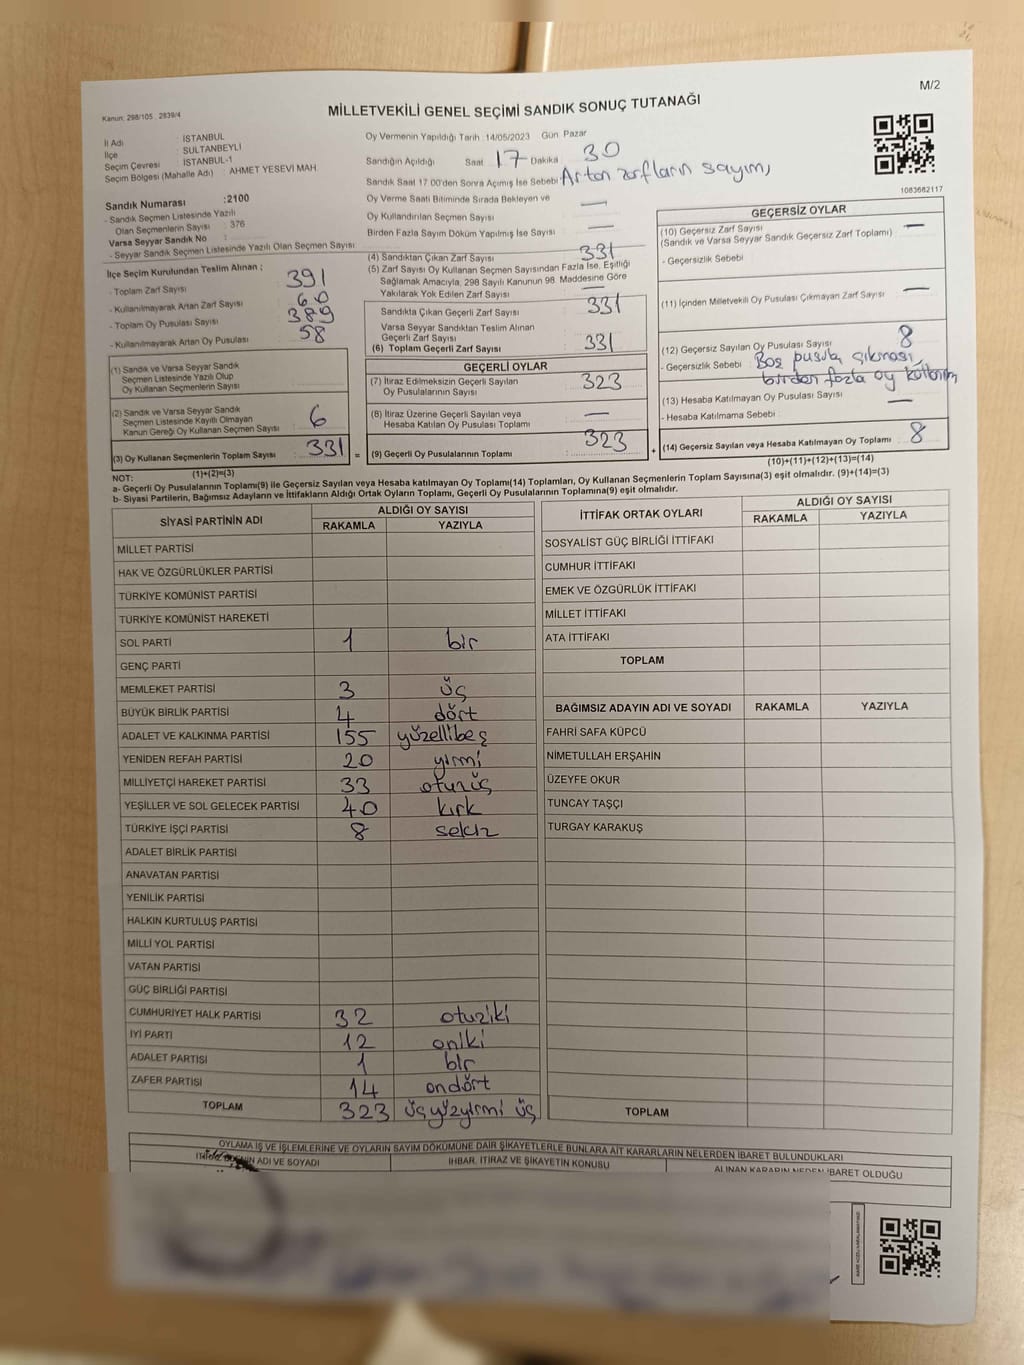 M/2
Kanun: 298/105 , 2839/4
MİLLETVEKİLİ GENEL SEÇİMİ SANDIK SONUÇ TUTANAĞI
İl Adı : İSTANBUL
İlçe : SULTANBEYLİ
Seçim Çevresi : İSTANBUL-1
Seçim Bölgesi (Mahalle Adı) : AHMET YESEVİ MAH.
Oy Vermenin Yapıldığı Tarih 14/05/2023 Gün Pazar
Sandığın Açıldığı Saat 17 Dakika 30
Sandık Saat 17.00'den Sonra Açılmış İse Sebebi Artan zarfların sayım,
1083682117
Sandık Numarası :2100
- Sandık Seçmen Listesinde Yazılı
Olan Seçmenlerin Sayısı : 376
Varsa Seyyar Sandık No :
- Seyyar Sandık Seçmen Listesinde Yazılı Olan Seçmen Sayısı
İlçe Seçim Kurulundan Teslim Alınan ;
- Toplam Zarf Sayısı : 391
- Kullanılmayarak Artan Zarf Sayısı : 60
- Toplam Oy Pusulası Sayısı : 389
- Kullanılmayarak Artan Oy Pusulası : 58
(1) Sandık ve Varsa Seyyar Sandık
Seçmen Listesinde Yazılı Olup
Oy Kullanan Seçmenlerin Sayısı :
(2) Sandık ve Varsa Seyyar Sandık
Seçmen Listesinde Kayıtlı Olmayan
Kanun Gereği Oy Kullanan Seçmen Sayısı : 6
(3) Oy Kullanan Seçmenlerin Toplam Sayısı : 331
(1)+(2)=(3)
Oy Verme Saati Bitiminde Sırada Bekleyen ve
Oy Kullandırılan Seçmen Sayısı : —
Birden Fazla Sayım Döküm Yapılmış İse Sayısı : —
(4) Sandıktan Çıkan Zarf Sayısı : 331
(5) Zarf Sayısı Oy Kullanan Seçmen Sayısından Fazla İse, Eşitliği
Sağlamak Amacıyla, 298 Sayılı Kanunun 98. Maddesine Göre
Yakılarak Yok Edilen Zarf Sayısı : —
Sandıkta Çıkan Geçerli Zarf Sayısı : 331
Varsa Seyyar Sandıktan Teslim Alınan
Geçerli Zarf Sayısı :
(6) Toplam Geçerli Zarf Sayısı : 331
GEÇERLİ OYLAR
(7) İtiraz Edilmeksizin Geçerli Sayılan
Oy Pusulalarının Sayısı : 323
(8) İtiraz Üzerine Geçerli Sayılan veya
Hesaba Katılan Oy Pusulası Toplamı : —
= (9) Geçerli Oy Pusulalarının Toplamı : 323 +
GEÇERSİZ OYLAR
(10) Geçersiz Zarf Sayısı : —
(Sandık ve Varsa Seyyar Sandık Geçersiz Zarf Toplamı)
- Geçersizlik Sebebi :
(11) İçinden Milletvekili Oy Pusulası Çıkmayan Zarf Sayısı : —
(12) Geçersiz Sayılan Oy Pusulası Sayısı : 8
- Geçersizlik Sebebi : Boş pusula çıkması,
birden fazla oy
(13) Hesaba Katılmayan Oy Pusulası Sayısı : —
- Hesaba Katılmama Sebebi :
(14) Geçersiz Sayılan veya Hesaba Katılmayan Oy Toplamı : 8
(10)+(11)+(12)+(13)=(14)
NOT:
a- Geçerli Oy Pusulalarının Toplamı(9) ile Geçersiz Sayılan veya Hesaba katılmayan Oy Toplamı(14) Toplamları, Oy Kullanan Seçmenlerin Toplam Sayısına(3) eşit olmalıdır. (9)+(14)=(3)
b- Siyasi Partilerin, Bağımsız Adayların ve İttifakların Aldığı Ortak Oyların Toplamı, Geçerli Oy Pusulalarının Toplamına(9) eşit olmalıdır.
SİYASİ PARTİNİN ADI ALDIĞI OY SAYISI
RAKAMLA YAZIYLA
MİLLET PARTİSİ
HAK VE ÖZGÜRLÜKLER PARTİSİ
TÜRKİYE KOMÜNİST PARTİSİ
TÜRKİYE KOMÜNİST HAREKETİ
SOL PARTİ 1 bir
GENÇ PARTİ
MEMLEKET PARTİSİ 3 üç
BÜYÜK BİRLİK PARTİSİ 4 dört
ADALET VE KALKINMA PARTİSİ 155 yüzellibeş
YENİDEN REFAH PARTİSİ 20 yirmi
MİLLİYETÇİ HAREKET PARTİSİ 33 otuzüç
YEŞİLLER VE SOL GELECEK PARTİSİ 40 kırk
TÜRKİYE İŞÇİ PARTİSİ 8 sekiz
ADALET BİRLİK PARTİSİ
ANAVATAN PARTİSİ
YENİLİK PARTİSİ
HALKIN KURTULUŞ PARTİSİ
MİLLİ YOL PARTİSİ
VATAN PARTİSİ
GÜÇ BİRLİĞİ PARTİSİ
CUMHURİYET HALK PARTİSİ 32 otuziki
İYİ PARTİ 12 oniki
ADALET PARTİSİ 1 bir
ZAFER PARTİSİ 14 ondört
TOPLAM 323 üçyüzyirmi üç
İTTİFAK ORTAK OYLARI ALDIĞI OY SAYISI
RAKAMLA YAZIYLA
SOSYALİST GÜÇ BİRLİĞİ İTTİFAKI
CUMHUR İTTİFAKI
EMEK VE ÖZGÜRLÜK İTTİFAKI
MİLLET İTTİFAKI
ATA İTTİFAKI
TOPLAM
BAĞIMSIZ ADAYIN ADI VE SOYADI RAKAMLA YAZIYLA
FAHRİ SAFA KÜPCÜ
NİMETULLAH ERŞAHİN
ÜZEYFE OKUR
TUNCAY TAŞÇI
TURGAY KARAKUŞ
TOPLAM
OYLAMA İŞ VE İŞLEMLERİNE VE OYLARIN SAYIM DÖKÜMÜNE DAİR ŞİKAYETLERLE BUNLARA AİT KARARLARIN NELERDEN İBARET BULUNDUKLARI
ADI VE SOYADI İHBAR, İTİRAZ VE ŞİKAYETİN KONUSU ALINAN KARARIN NEDEN İBARET OLDUĞU